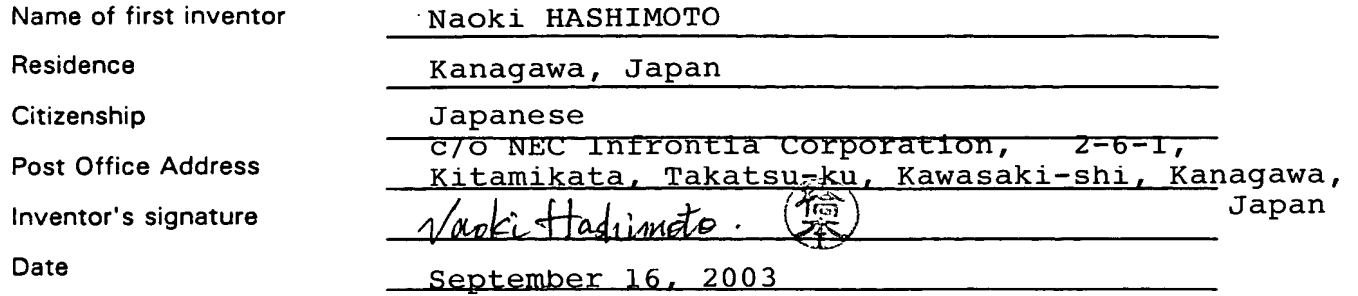 Name of first inventor Naoki HASHIMOTO
Residence Kanagawa, Japan
Citizenship Japanese
c/o NEC Infrontia Corporation, 2-6-1,
Post Office Address Kitamikata, Takatsu-ku, Kawasaki-shi, Kanagawa,
Japan
Inventor's signature Naoki Hashimoto. 橋本
Date September 16, 2003